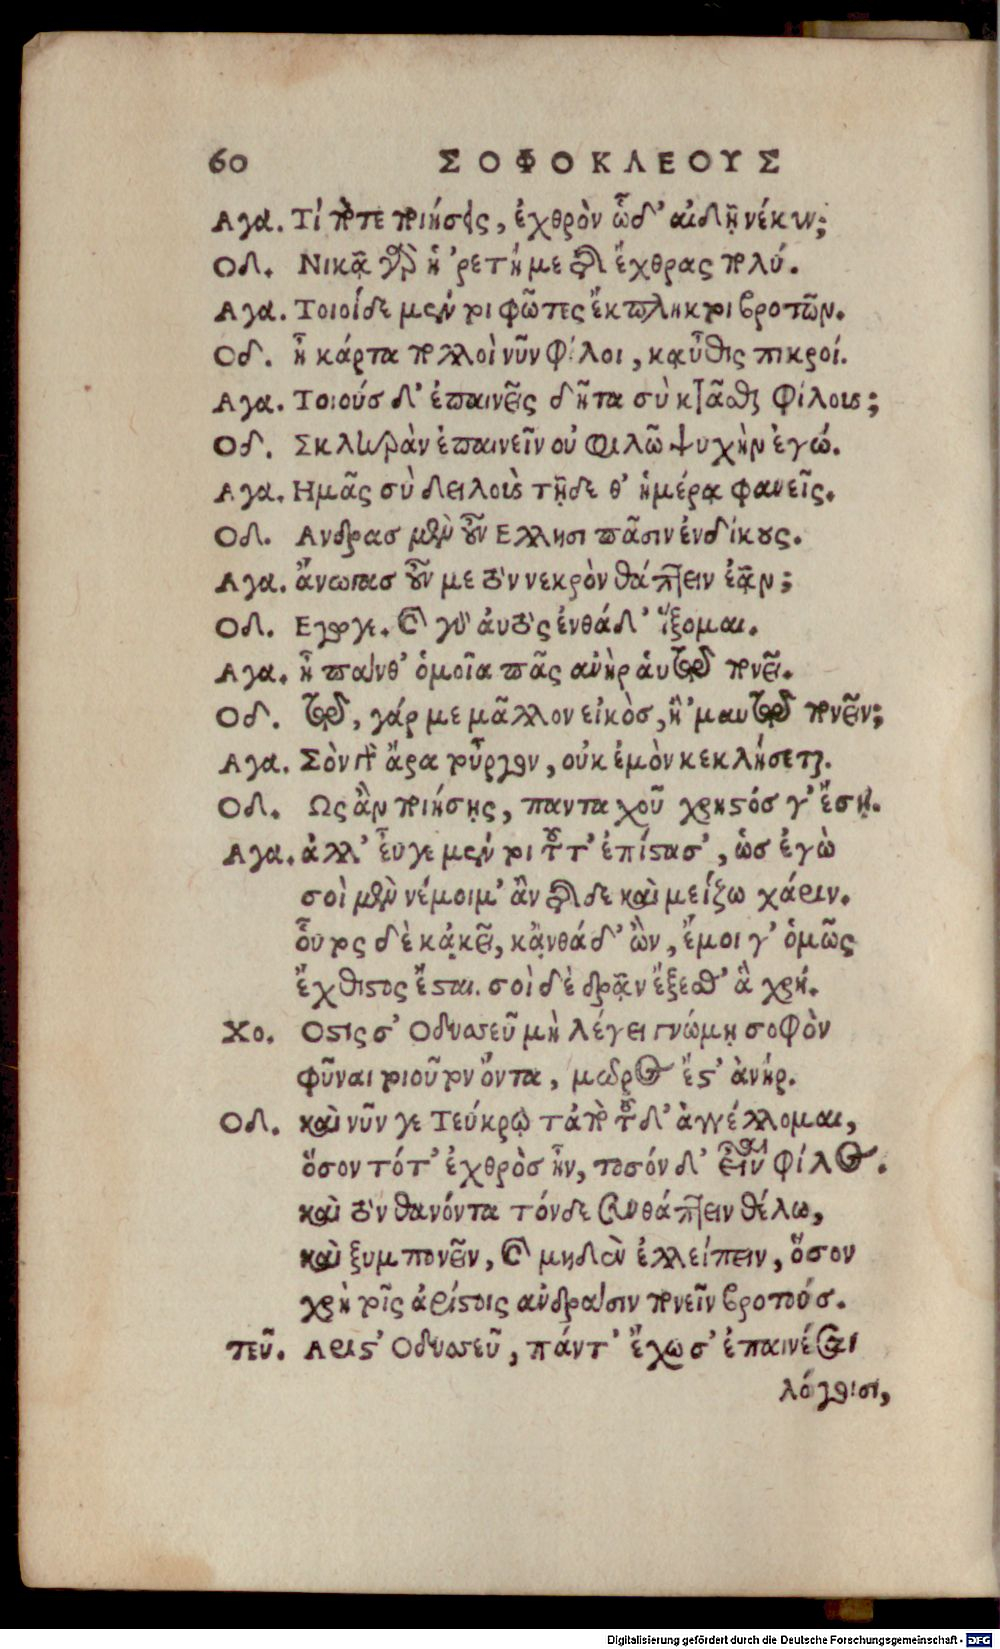 60 ΣΟΦΟΚΛΕΟΥΣ
Αγα. Τί ποτε ποιήσεις, ἐχθρὸν ὧδ' αἰδῇ νέκυν;
Οδ. Νικᾷ γὰρ ἡ 'ρετή με τῆς ἔχθρας πολύ.
Αγα. Τοιοίδε μέντοι φῶτες ἔκπληκτοι βροτῶν.
Οδ. ἦ κάρτα πολλοὶ νῦν φίλοι, καὖθις πικροί.
Αγα. Τοιούσδ' ἐπαινεῖς δῆτα σὺ κτᾶσθαι φίλους;
Οδ. Σκληρὰν ἐπαινεῖν οὐ φιλῶ ψυχὴν ἐγώ.
Αγα. Ημᾶς σὺ δειλοὺς τῇδε θ' ἡμέρᾳ φανεῖς.
Οδ. Ανδρασ μὲν οὖν Ελλησι πᾶσιν ἐνδίκους.
Αγα. ἄνωγασ οὖν με τὸν νεκρὸν θάπτειν ἐᾷν;
Οδ. Εγωγε. καὶ γὰρ ἀυτὸς ἐνθάδ' ἵξομαι.
Αγα. ἦ πάνθ' ὁμοῖα πᾶς ἀνὴρ ἁυτῷ πονεῖ.
Οδ. τῷ, γάρ με μᾶλλον εἰκὸς, ἢ 'μαυτῷ πονεῖν;
Αγα. Σὸν ἆρα τοὖργον, οὐκ ἐμὸν κεκλήσεται.
Οδ. Ως ἂν ποιήσῃς, πανταχοῦ χρηστόσ γ' ἔσῃ.
Αγα. ἀλλ' εὖγε μέντοι τοῦτ' ἐπίστασ', ὡσ ἐγὼ
σοὶ μὲν νέμοιμ' ἂν τῆσδε καὶ μείζω χάριν.
οὗτος δὲ κᾀκεῖ, κᾀνθάδ' ὢν, ἔμοιγ' ὁμῶς
ἔχθιστος ἔσται. σοὶ δὲ δρᾷν ἔξεσθ' ἃ χρή.
Χο. Οστις σ' Οδυσσεῦ μὴ λέγει γνώμῃ σοφὸν
φῦναι τοιοῦτον ὄντα, μωρός ἔστ' ἀνήρ.
Οδ. καὶ νῦν γε Τεύκρῳ τἀπὸ τοῦδ' ἀγγέλλομαι,
ὅσον τότ' ἐχθρὸσ ἦν, τοσόνδ' εἶναι φίλος.
καὶ τὸν θανόντα τόνδε συνθάπτειν θέλω,
καὶ ξυμπονεῖν, καὶ μηδὲν ἐλλείπειν, ὅσον
χρὴ τοῖς ἀρίστοις ἀνδράσιν πονεῖν βροτούσ.
τεῦ. Αριστ' Οδυσσεῦ, πάντ' ἔχω σ' ἐπαινέσαι
λόγοισι,
Digitalisierung gefördert durch die Deutsche Forschungsgemeinschaft - DFG